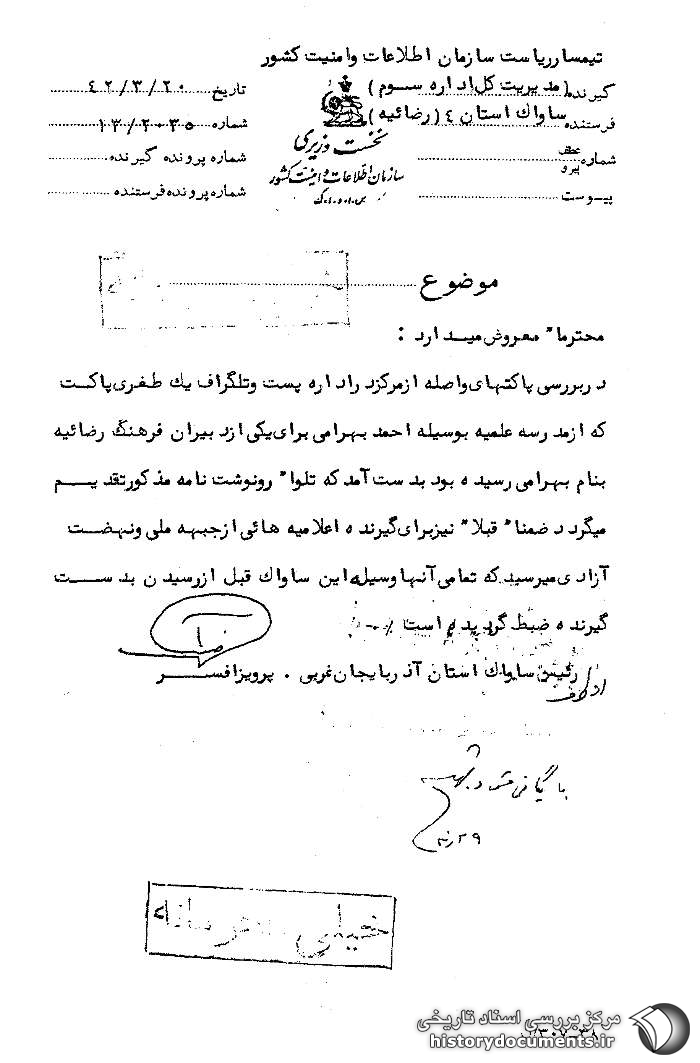 تیمسار ریاست سازمان اطلاعات و امنیت کشور
گیرنده (مدیریت کل اداره سوم)
فرستنده ساواک استان ٤ (رضائیه)
شماره عطف پیرو
پیوست
نخست وزیری
سازمان اطلاعات و امنیت کشور
تاریخ ٤٢/٣/٢٠
شماره ١٣/٢٠٣٥
شماره پرونده گیرنده
شماره پرونده فرستنده
موضوع
محترما" معروض میدارد :
در بررسی پاکتهای واصله از مرکز در اداره پست و تلگراف یک طغری پاکت
که از مدرسه علمیه بوسیله احمد بهرامی برای یکی از دبیران فرهنگ رضائیه
بنام بهرامی رسیده بود بدست آمد که تلوا" رونوشت نامه مذکور تقدیم
میگردد ضمنا" قبلا" نیز برای گیرنده اعلامیه هائی از جبهه ملی و نهضت
آزادی میرسید که تمامی آنها وسیله این ساواک قبل از رسیدن بدست
گیرنده ضبط گردیده است
رئیس ساواک استان آذربایجان غربی . پرویز افسر
از طرف
خیلی محرمانه
مرکز بررسی اسناد تاریخی
historydocuments.ir